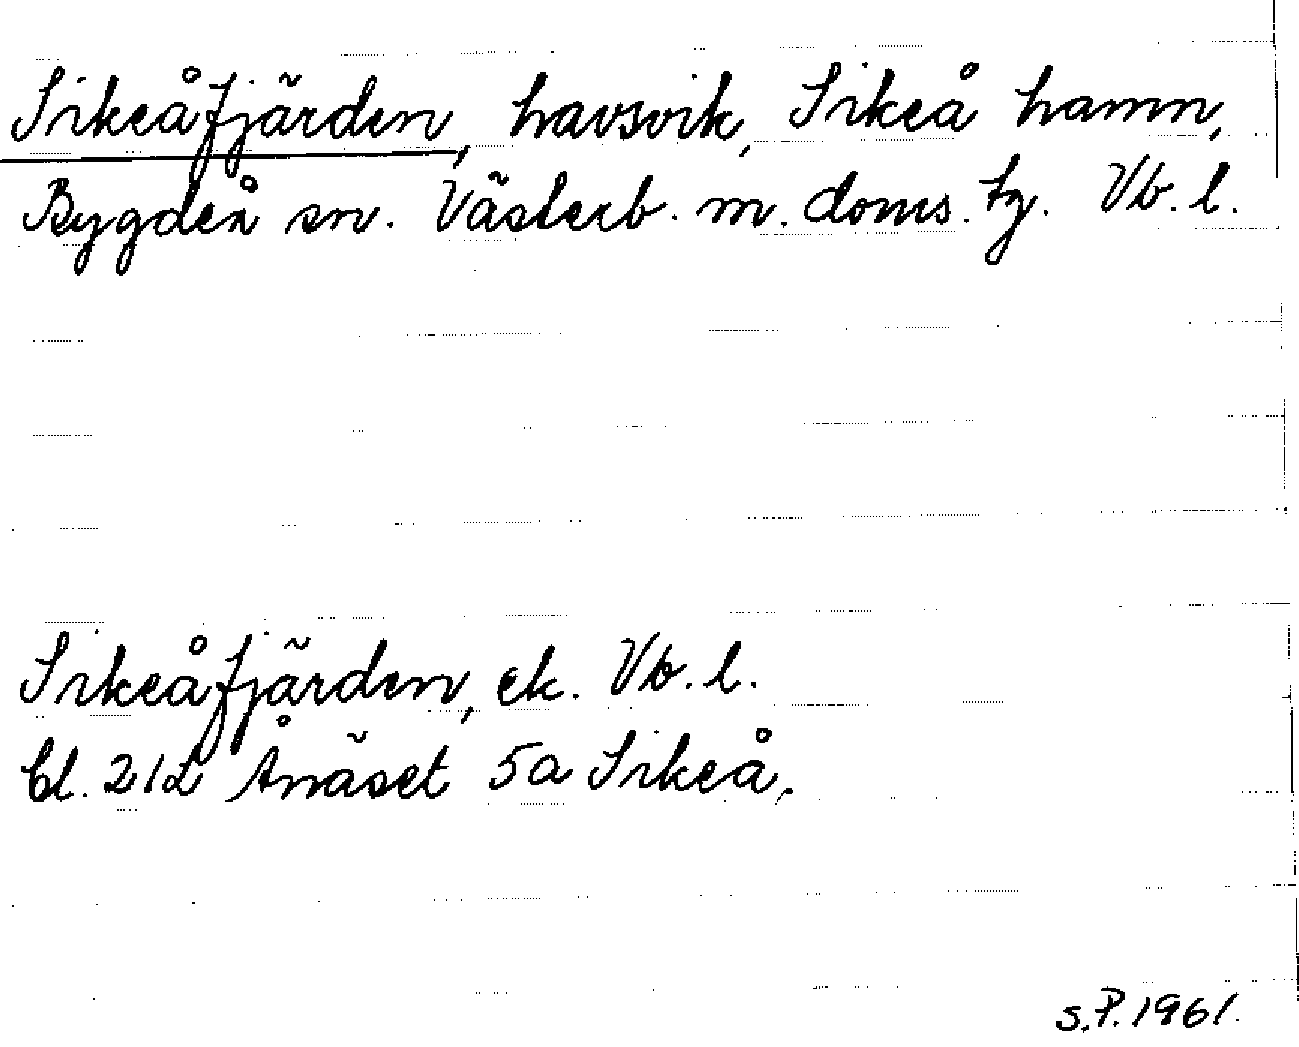 Sikeåfjärden, havsvik, Sikeå hamn,
Bygdeå sn. Västerb. m. doms. tg. Vb. l.
Sikeåfjärden, ek. Vb. l.
bl. 21L Ånäset 5a Sikeå.
S.P. 1961.